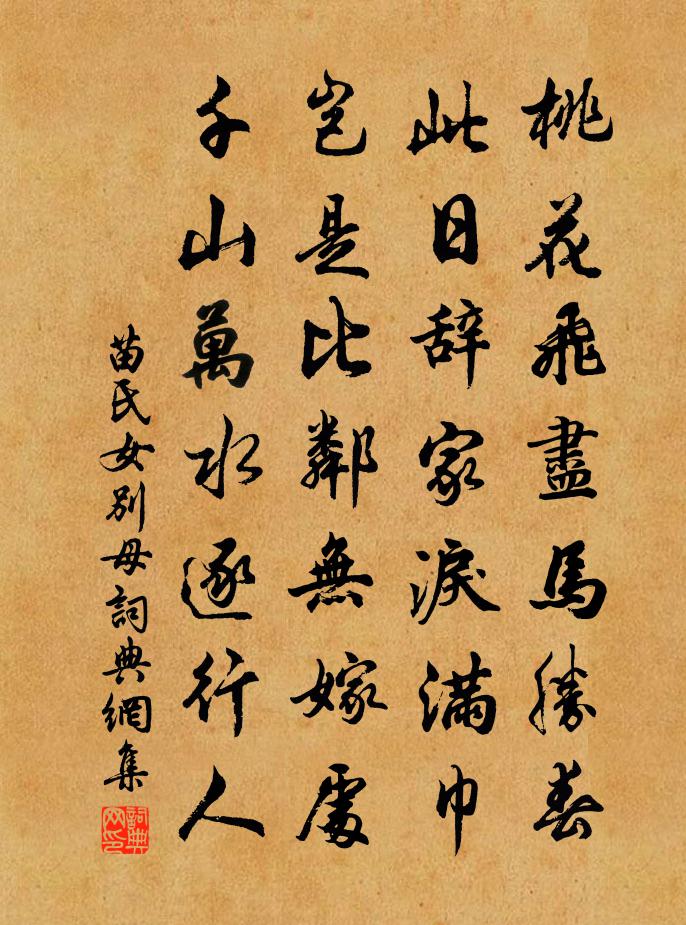 桃花飛盡馬勝春
此日辞家淚滿巾
豈是比鄰無嫁處
千山萬水逐行人
苗氏女別母詞典網集
詞典网印